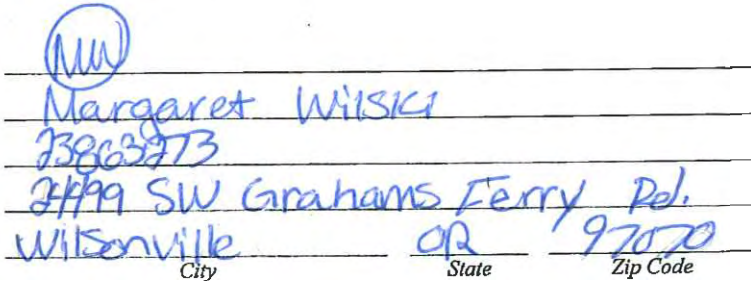 MW
Margaret Wilski
23863273
24499 SW Grahams Ferry Rd.
Wilsonville OR 97070
City State Zip Code